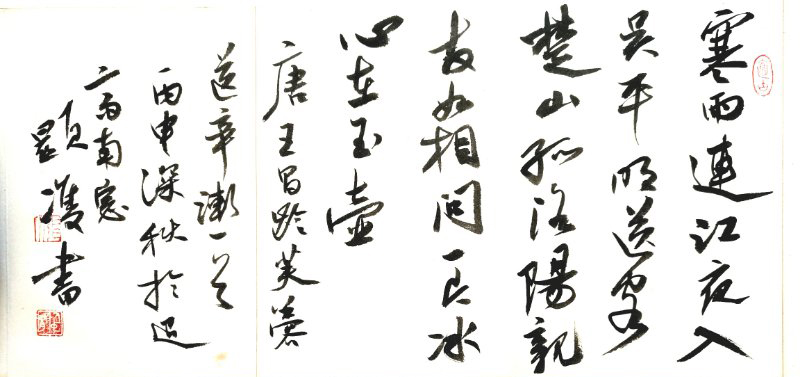 寒雨連江夜入
吳平明送客
楚山孤洛陽親
友如相問一片冰
心在玉壺
唐王昌齡芙蓉
送辛漸一首
丙申深秋於迎
南窗
顯書